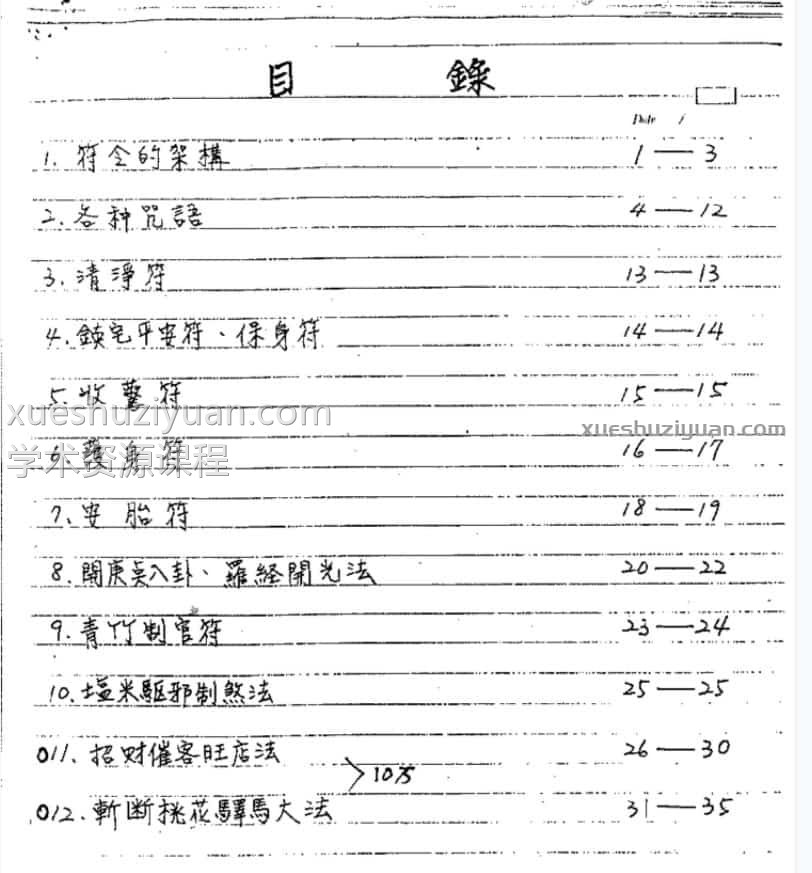 目 錄
Date /
1. 符令的架構 1——3
2. 各种咒語 4——12
3. 清淨符 13——13
4. 鎮宅平安符、保身符 14——14
5. 收驚符 15——15
xueshuziyuan.com
xueshuziyuan.com
6. 護身符 16——17
学术资源课程
7. 安胎符 18——19
8. 開庚吳八卦、羅経開光法 20——22
9. 青竹制官符 23——24
10. 塩米驅邪制煞法 25——25
011. 招财催客旺店法 26——30
>
012. 斬断挑花驛馬大法 31——35